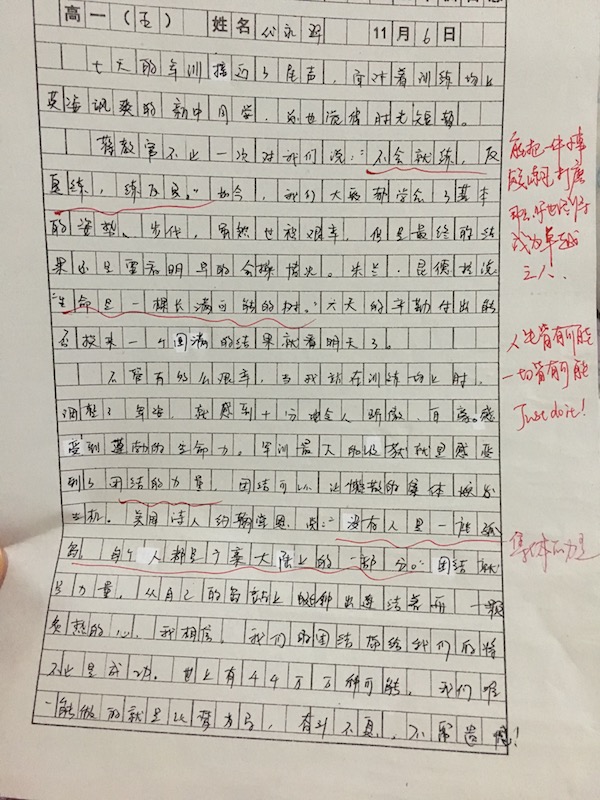 高一（五） 姓名 11月6日
七天的军训接近了尾声，面对着训练场上
英姿飒爽的新中同学，总也觉得时光短暂。
蒋教官不止一次对我们说："不会就练，反
复练，练反复。"如今，我们大致都学会了基本
的姿势、步伐，虽然也被艰辛，但是最终的结
果还是要看明早的会操情况。米兰·昆德拉说
"生命是一棵长满可能的树。"六天的辛勤付出能
否换来一个圆满的结果就看明天了。
不管有多么艰辛，当我站在训练场上时，
调整了军姿，就感到十分地令人骄傲、自豪。感
受到蓬勃的生命力。军训最大的收获就是感受
到了团结的力量，团结可以让懒散的集体焕发
生机。英国诗人约翰·多恩说："没有人是一座孤
岛，每个人都是一个寨大陆上的一部分。"团结就
是力量，从自己的岛站上延伸出连结着另一颗
炙热的心，我相信，我们的团结带给我们的将
不止是成功。世上有44万万种可能，我们唯
一能做的就是以梦为马，奋斗不息，不留遗憾！
能把一件事
成为卓越
之人．
人生皆有可能
一切皆有可能
Just do it!
集体的力量